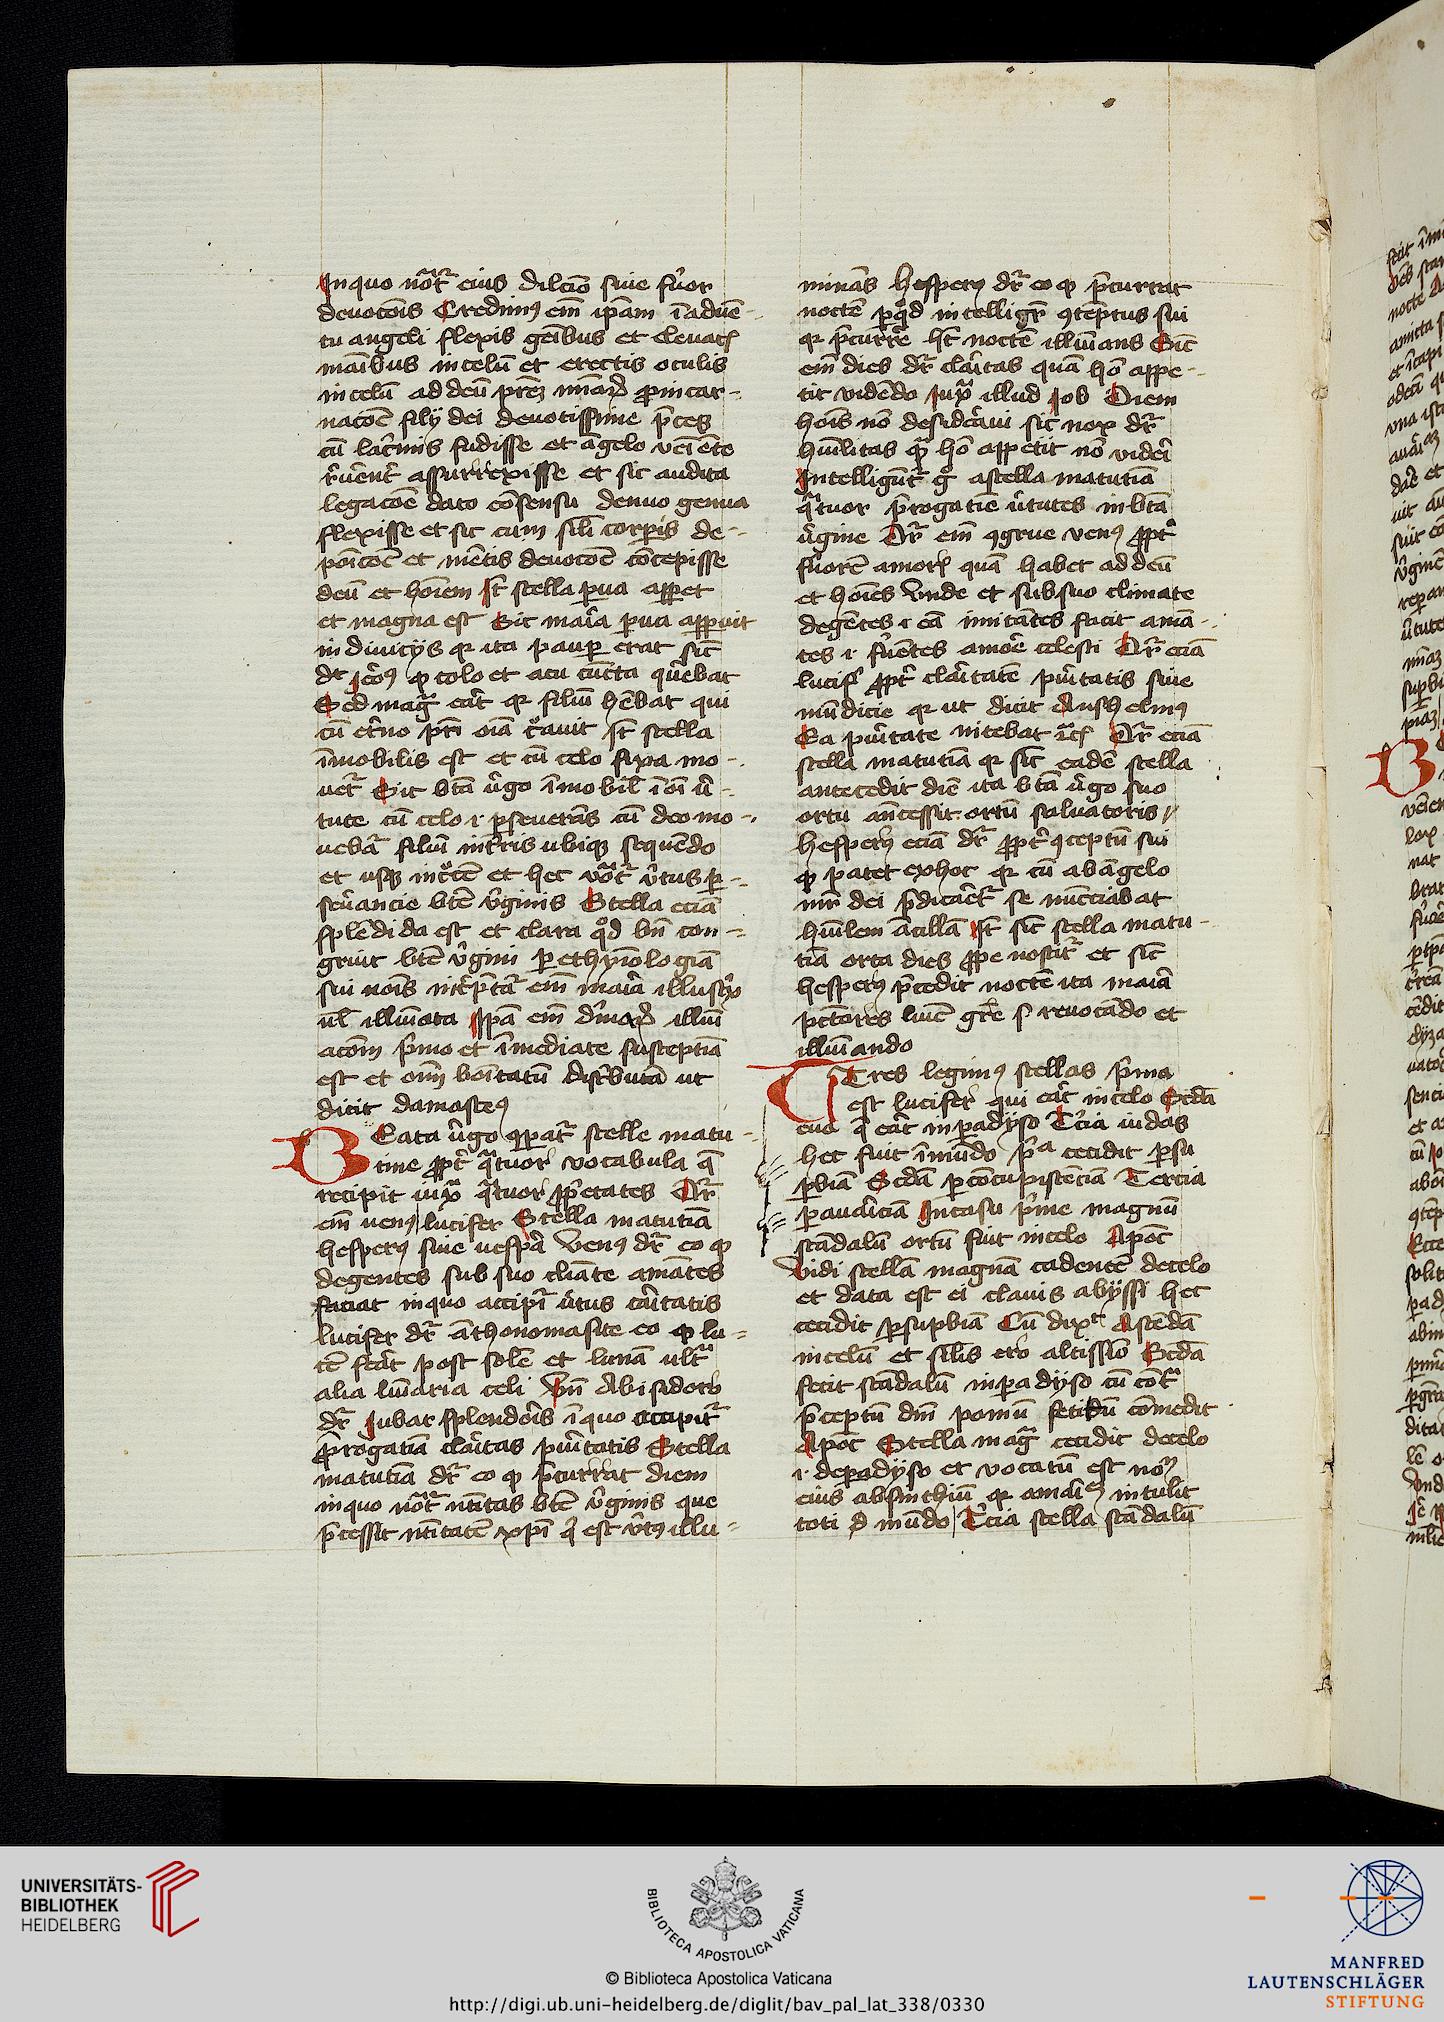 In quo not̄r eius dilcio siue feruor
deuocōis Credimus em̄ ip̄am ī aduē-
tu angeli flexis geībus et eleuatis
maībus in celū et erectis oculis
in celū ad deū prēz
nacōe filij dei deuotissime p̄ces
cū lac̄mis fudisse et āgelo veīente
assurrexisse et sic audita
legacōe dato cōsensu denuo genua
flexisse et sic cum sil̄i corp̄is de-
et mētis deuocōe cōcepisse
deū et hoīem It̄ stella p̄ua app̄et
et magna est Sic maīa p̄ua app̄uit
in diuicijs qr ita paup̄ erat sic̄
dt Jero9 colo et acu cūcta q̄rebat
Sed maḡ erāt qr filiū hēbat qui
cū et̄no pr̄i oīa c̄auit It̄ stella
īmobilis est et cū celo fixa mo-
uet̄ Sic bt̄a v̄go īmobil̄ ī oī v̄-
tute cū celo i p̄seuerās cū deo mo-
uebat̄ filiū in t̄ris ubiqz sequēdo
et usqz et hec not̄r v̄tus p̄-
seūancie bt̄e v̄ginis Stella eciā
splēdida est et clara qd bn̄ con-
gruit bt̄e v̄gini p̄ ethymologiā
sui noīs int̄p̄tat̄ em̄ maīa illust̄x
ul̄ illuīata Ip̄a em̄ illuī
acōm p̄mo et īmediate susceptiā
est et oīm boītatū distbutā ut
dicit damascen9
Beata v̄go qp̄at̄ stelle matu-
tine ꝓpt̄ q̄tuor vocabula q̄
recipit iux̄ q̄tuor ꝓp̄etates Dr̄
em̄ uen9 lucifer Stella matutīa
hesper9 siue uesp̄a Ven9 dr̄ eo ꝙ
degentes sub suo clīate amātes
faciat in quo accipit̄ v̄tus caītatis
lucifer dr̄ āthonomasice eo ꝙ lu-
cē ferāt post solē et lunā ult̄
alia luīaria celi Vn̄ Ab isidoro
dr̄ Jubar splendoīs ī quo accipit̄
p̄rogatīa claītas puītatis Stella
matutīa dr̄ eo ꝙ p̄currat diem
in quo not̄r nītitas bt̄e v̄ginis que
p̄cessit nītitatē xp̄i q̄ est v̄t9 illu-
minās hesper9 dr̄ eo ꝙ p̄currat
noctē p̄ qd intelligit̄ ꝯceptus sui
qr p̄curre h̄t noctē illuīans Sic̄
em̄ dies dr̄ claītas quā ho appe-
tit vidēdo Jux̄ illud Job Diem
hoīs nō desideraui sic nox dr̄
huīlitas q̄ ho appetit nō videri
Intelligūt̄ g̊ a stella matutīa
q̄tuor p̄rogatīe v̄tutes in bt̄a
v̄gine Dr̄ em̄ ꝯgrue ven9 ꝓpt̄
feruorē amoris quā habet ad deū
et hoīes Vnde et sub suo climate
degētes i eā imitātes facit amā-
tes i feruētes amore celesti Dr̄ eciā
lucifer ꝓpt̄ claītatē puītatis siue
mūdicie qr ut dicit Anshelm9
Ea puītate nitebat Dr̄ eciā
stella matutīa qr sic̄ eadē stella
antecedit diē ita bt̄a v̄go suo
ortu an̄cessit ortū saluatoris
hesper9 eciā dr̄ ꝓpt̄ ꝯceptū sui
ꝙ patet ex hoc qr cū ab āgelo
mr̄ dei p̄dicaret̄ se nūciabat
huīlem ācillā It̄ sic̄ stella matu-
tīa orta dies ꝓpe noscit̄ et sic̄
hesper9 p̄cedit noctē ita maīa
pctōres lucē gr̄e reuocādo et
illuīando
Tres legim9 stellas p̄ma
est lucifer qui erāt in celo Scd̄a
eua q̄ erāt in p̄adyso T̄cia iudas
hec fuit ī mūdo p̄a cecidit p̄ su
p̄biā Scd̄a p̄ cōcupiscēciā Tercia
p̄ auāciā In casu p̄me magnū
scādalū ortū fuit in celo Apoc̄
Vidi stellā magnā cadentē de celo
et data est ei clauis abyssi hec
cecidit p̄ sup̄biā Cū dixt Ascēdā
in celū et sil̄is ero altissīo Scd̄a
fecit scādalū in p̄adyso cū cōt̄
p̄ceptū dn̄i pomū fetidū comedit
Apoc̄ Stella maḡ cecidit de celo
i de p̄adyso et vocatū est nom̄
eius absinthiū qr intulit
toti mūdo T̄cia stella scādalū
UNIVERSITÄTS-
BIBLIOTHEK
HEIDELBERG
BIBLIOTECA APOSTOLICA VATICANA
© Biblioteca Apostolica Vaticana
http://digi.ub.uni-heidelberg.de/diglit/bav_pal_lat_338/0330
MANFRED
LAUTENSCHLÄGER
STIFTUNG